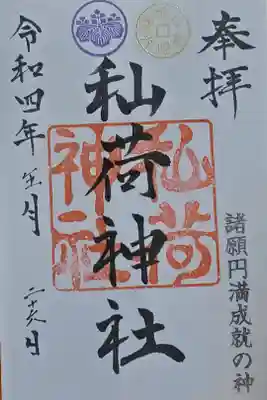 奉拝
諸願円満成就の神
秈荷神社
秈荷
神社
令和四年 五月